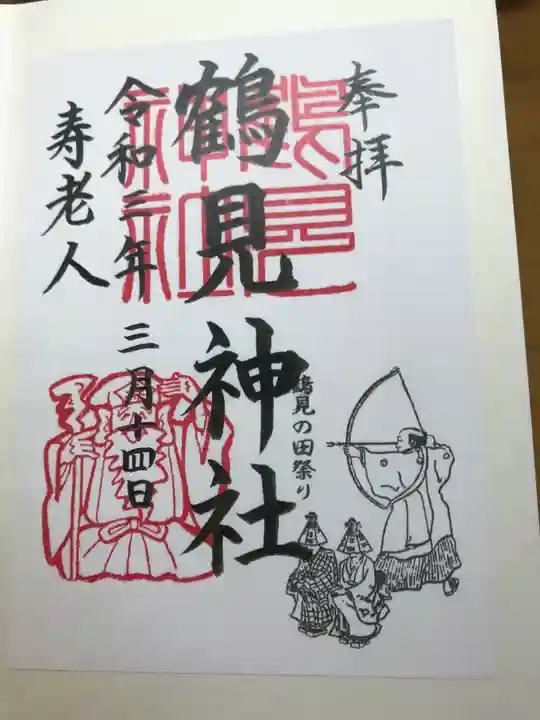 奉拝
鶴見の田祭り
鶴見神社
令和三年 三月十四日
寿老人